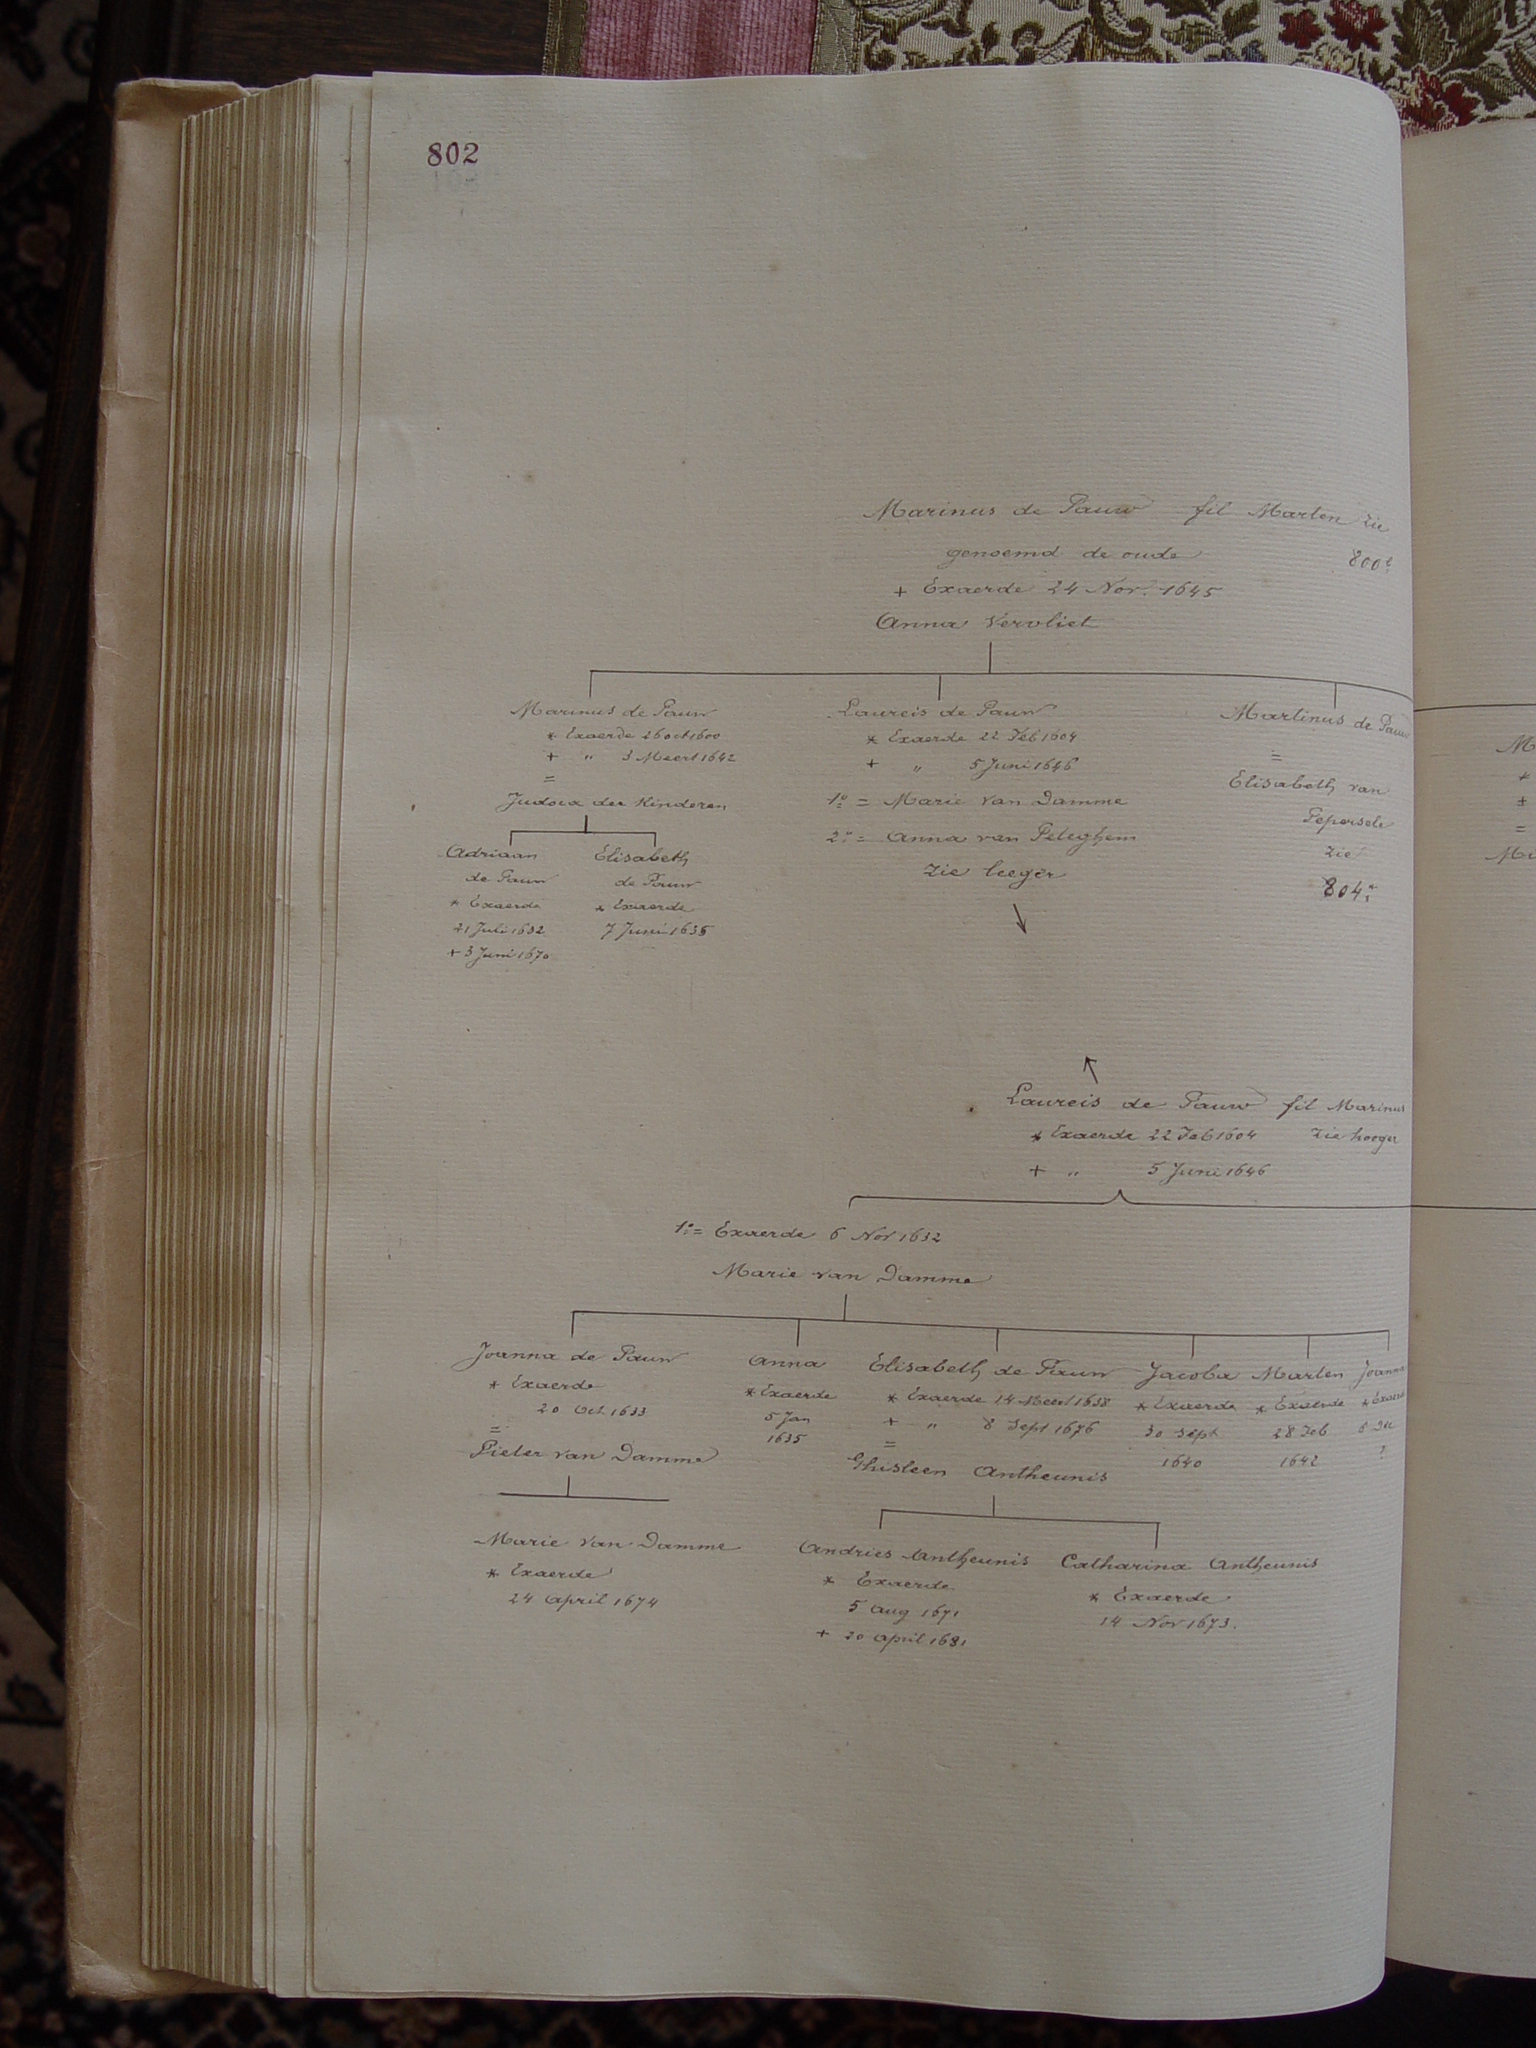 802
Marinus de Pauw fil Marten zie
genoemd de oude 800
+ Exaerde 24 Nov. 1645
Anna Vervliet
Marinus de Pauw
* Exaerde 26 oct 1600
+ " 3 Meert 1642
=
Judoca der Kinderen
Adriaan
de Pauw
* Exaerde
21 Juli 1632
+ 3 Juni 1670
Elisabeth
de Pauw
* Exaerde
7 Juni 1635
Laureis de Pauw
* Exaerde 22 Feb 1604
+ " 5 Juni 1646
1° = Marie van Damme
2° = Anna van Peteghem
zie leeger
Martinus de Pauw
=
Elisabeth van
zie
804
M
*
+
=
Laureis de Pauw fil Marinus
* Exaerde 22 Feb 1604 zie hooger
+ " 5 Juni 1646
1° = Exaerde 6 Nov 1632
Marie van Damme
Joanna de Pauw
* Exaerde
20 Oct 1633
=
Pieter van Damme
Marie van Damme
* Exaerde
24 April 1674
Anna
* Exaerde
5 Jan
1635
Elisabeth de Pauw
* Exaerde 14 Meert 1638
+ " 8 Sept 1676
=
Ghisleen Antheunis
Andries Antheunis
* Exaerde
5 Aug 1671
+ 20 April 1681
Catharina Antheunis
* Exaerde
14 Nov 1673.
Jacoba
* Exaerde
30 Sept
1640
Marten
* Exaerde
28 Feb
1642